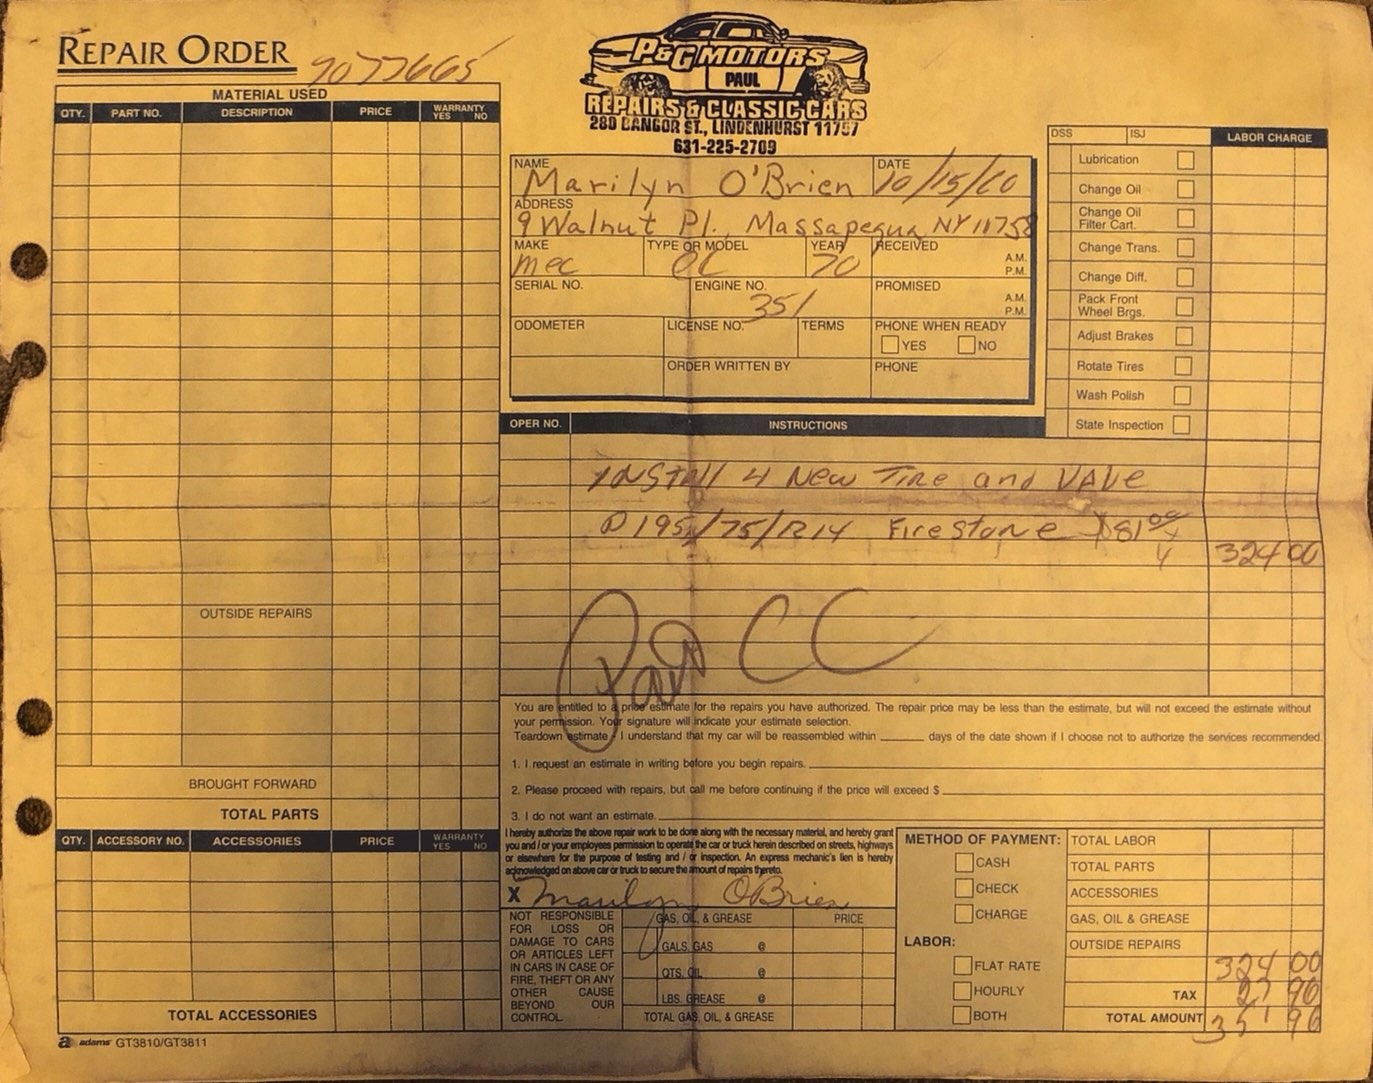 REPAIR ORDER
9077665
P&G MOTORS
PAUL
REPAIRS & CLASSIC CARS
280 BANGOR ST., LINDENHURST 11757
631-225-2709
MATERIAL USED
QTY. PART NO. DESCRIPTION PRICE WARRANTY YES NO
OUTSIDE REPAIRS
BROUGHT FORWARD
TOTAL PARTS
QTY. ACCESSORY NO. ACCESSORIES PRICE WARRANTY YES NO
TOTAL ACCESSORIES
adams GT3810/GT3811
NAME Marilyn O'Brien DATE 10/15/
ADDRESS
9 Walnut Pl., Massapequa, NY 11758
MAKE TYPE OR MODEL YEAR RECEIVED
mec 70 A.M. P.M.
SERIAL NO. ENGINE NO. 351 PROMISED A.M. P.M.
ODOMETER LICENSE NO. TERMS PHONE WHEN READY
YES NO
ORDER WRITTEN BY PHONE
DSS ISJ LABOR CHARGE
Lubrication
Change Oil
Change Oil
Filter Cart.
Change Trans.
Change Diff.
Pack Front
Wheel Brgs.
Adjust Brakes
Rotate Tires
Wash Polish
State Inspection
OPER NO. INSTRUCTIONS
INSTAll 4 New Tire and VAlve
P195/75/R14 Firestone $81 00 x
4 324 00
Paid CC
You are entitled to a price estimate for the repairs you have authorized. The repair price may be less than the estimate, but will not exceed the estimate without
your permission. Your signature will indicate your estimate selection.
Teardown estimate. I understand that my car will be reassembled within ______ days of the date shown if I choose not to authorize the services recommended.
1. I request an estimate in writing before you begin repairs.
2. Please proceed with repairs, but call me before continuing if the price will exceed $
3. I do not want an estimate.
I hereby authorize the above repair work to be done along with the necessary material, and hereby grant
you and / or your employees permission to operate the car or truck herein described on streets, highways
or elsewhere for the purpose of testing and / or inspection. An express mechanic's lien is hereby
acknowledged on above car or truck to secure the amount of repairs thereto.
X Marilyn O'Brien
NOT RESPONSIBLE
FOR LOSS OR
DAMAGE TO CARS
OR ARTICLES LEFT
IN CARS IN CASE OF
FIRE, THEFT OR ANY
OTHER CAUSE
BEYOND OUR
CONTROL.
GAS, OIL, & GREASE PRICE
GALS. GAS @
QTS. OIL @
LBS. GREASE @
TOTAL GAS, OIL, & GREASE
METHOD OF PAYMENT:
CASH
CHECK
CHARGE
LABOR:
FLAT RATE
HOURLY
BOTH
TOTAL LABOR
TOTAL PARTS
ACCESSORIES
GAS, OIL & GREASE
OUTSIDE REPAIRS
324 00
TAX 27 90
TOTAL AMOUNT 351 90